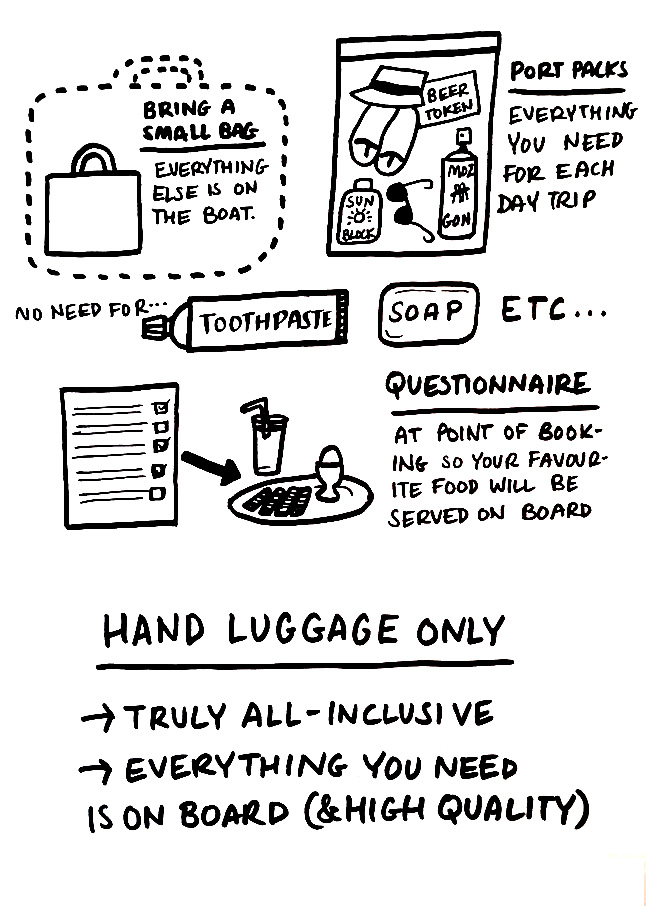 BRING A
SMALL BAG
EVERYTHING
ELSE IS ON
THE BOAT.
BEER
TOKEN
SUN
BLOCK
MOZ
GON
PORT PACKS
EVERYTHING
YOU NEED
FOR EACH
DAY TRIP
NO NEED FOR...
TOOTHPASTE
SOAP
ETC...
QUESTIONNAIRE
AT POINT OF BOOK-
ING SO YOUR FAVOUR-
ITE FOOD WILL BE
SERVED ON BOARD
HAND LUGGAGE ONLY
→ TRULY ALL-INCLUSIVE
→ EVERYTHING YOU NEED
IS ON BOARD (& HIGH QUALITY)